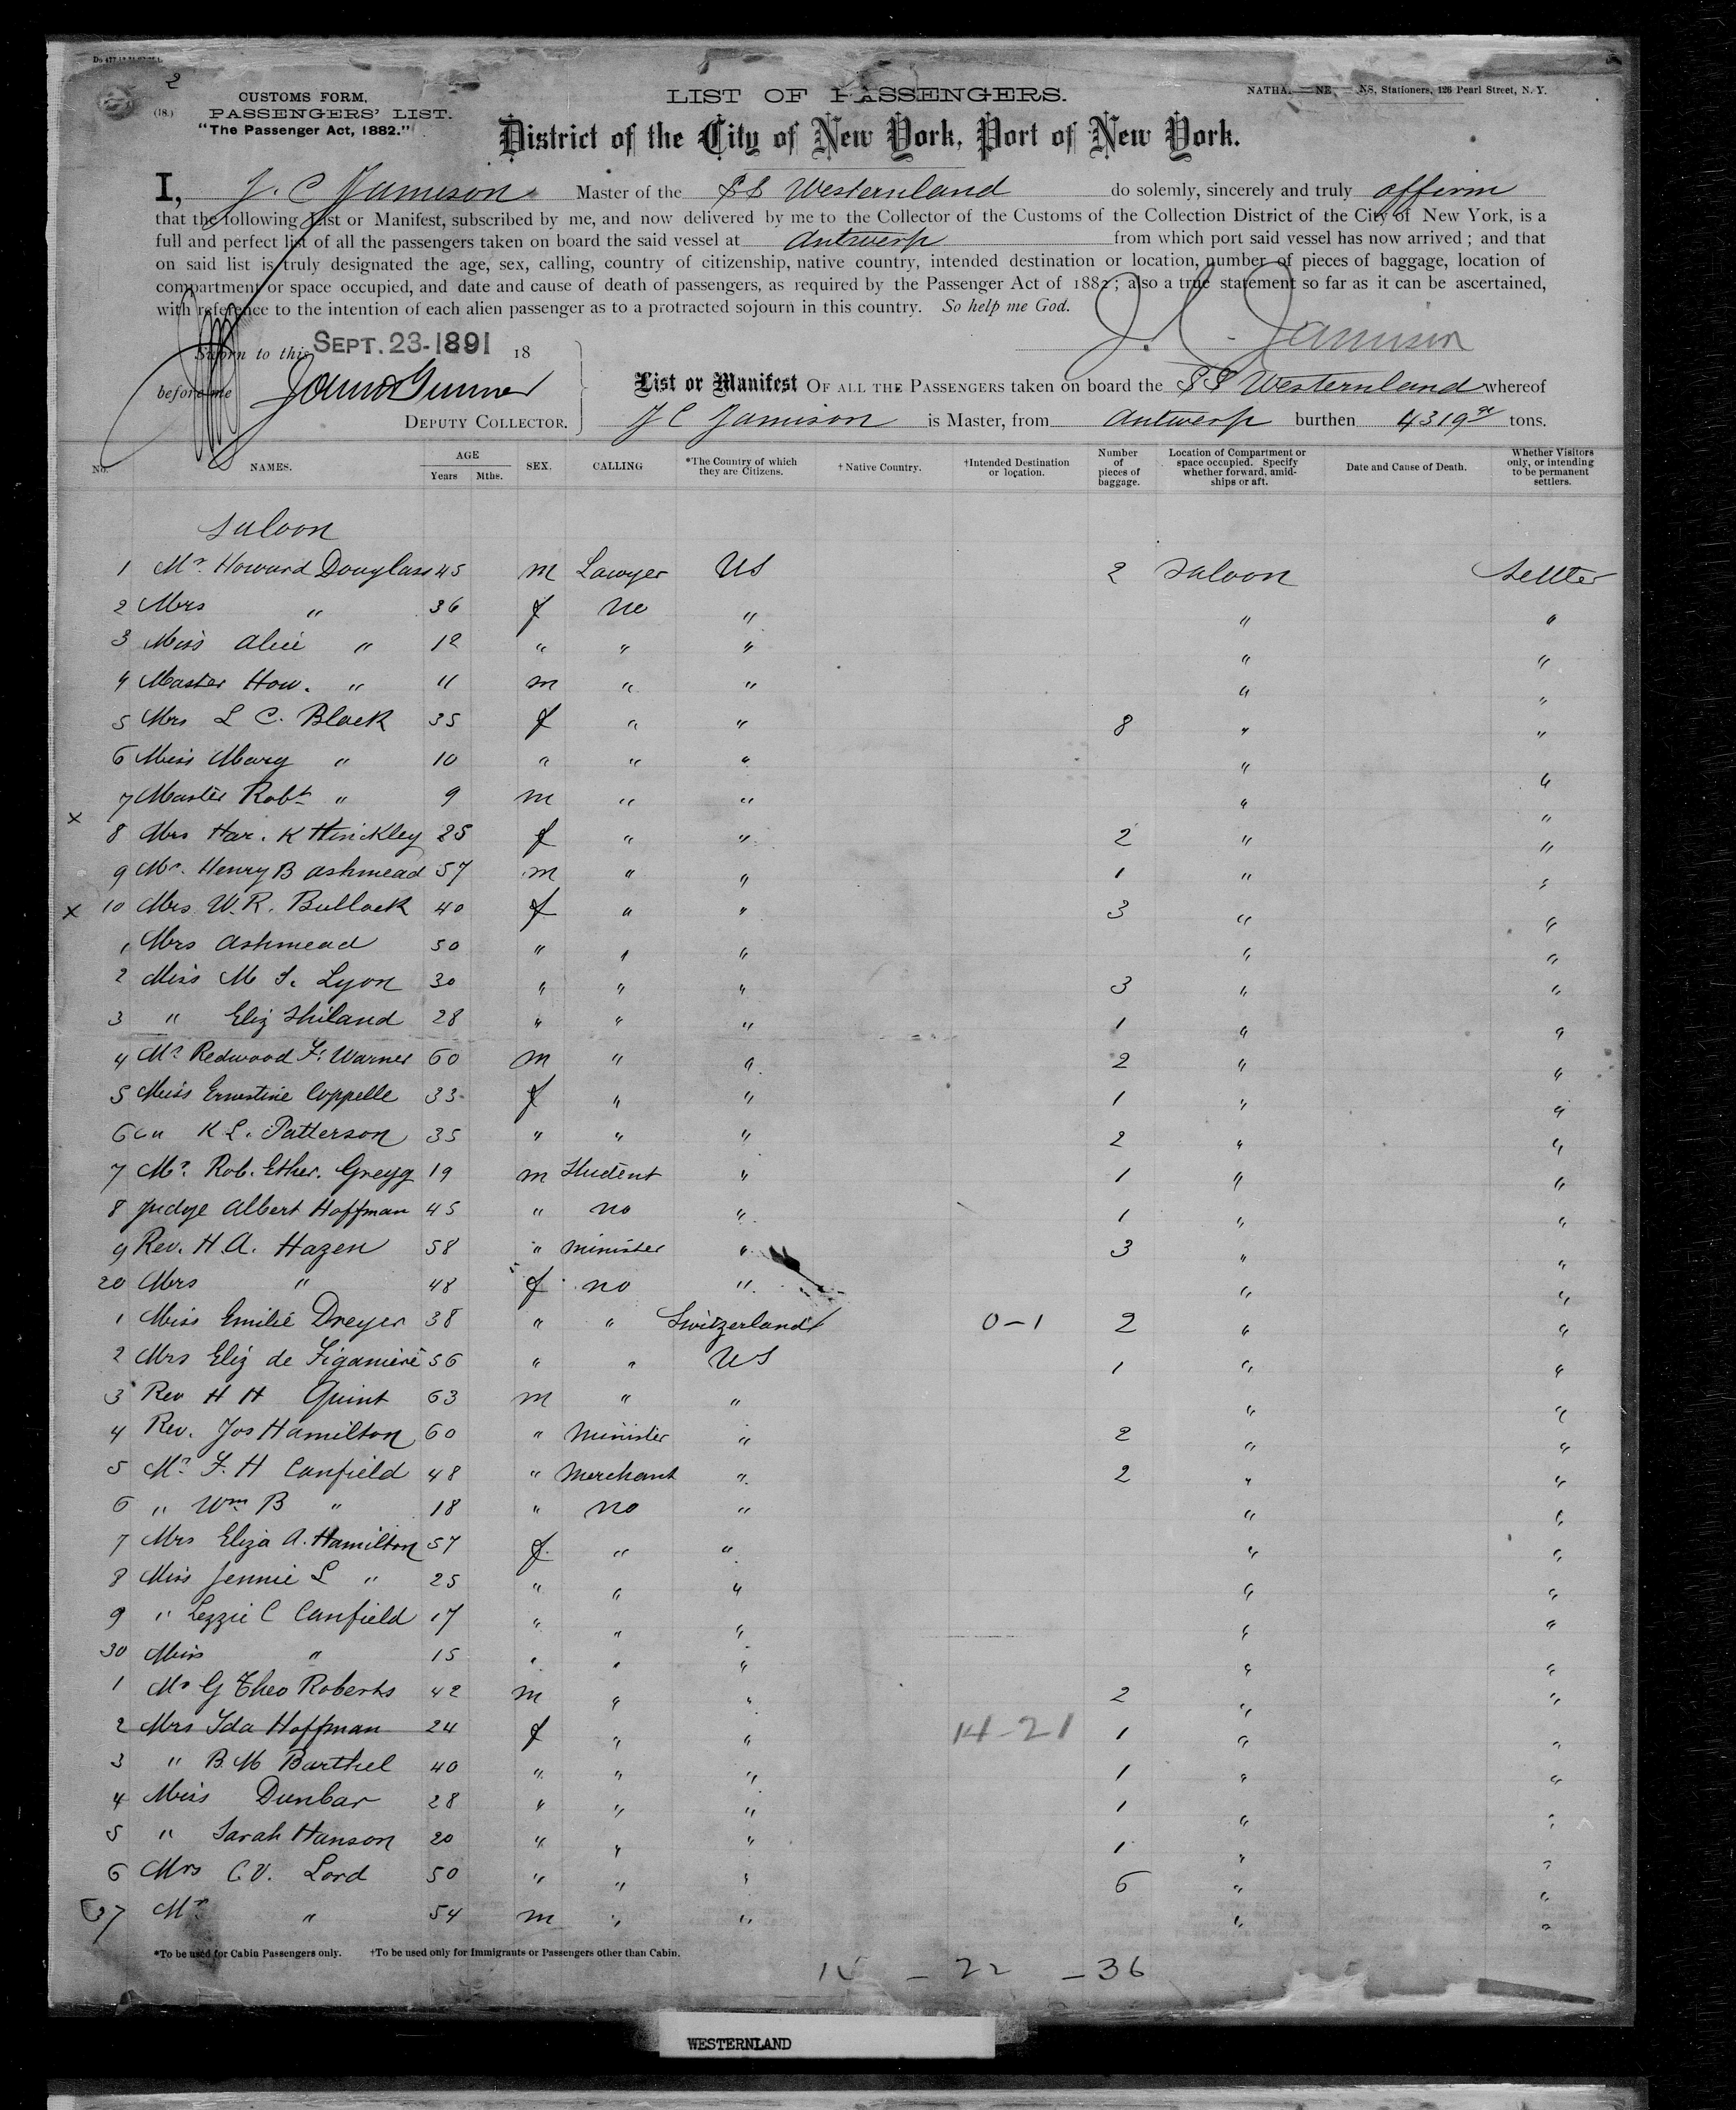 2
(18.)
CUSTOMS FORM,
PASSENGERS' LIST.
"The Passenger Act, 1882."
LIST OF PASSENGERS.
NATHA NE NS, Stationers, 126 Pearl Street, N. Y.
District of the City of New York, Port of New York.
I, J. C Jamison Master of the SS Westernland do solemly, sincerely and truly affirm
that the following List or Manifest, subscribed by me, and now delivered by me to the Collector of the Customs of the Collection District of the City of New York, is a
full and perfect list of all the passengers taken on board the said vessel at Antwerp from which port said vessel has now arrived ; and that
on said list is truly designated the age, sex, calling, country of citizenship, native country, intended destination or location, number of pieces of baggage, location of
compartment or space occupied, and date and cause of death of passengers, as required by the Passenger Act of 1882 ; also a true statement so far as it can be ascertained,
with reference to the intention of each alien passenger as to a protracted sojourn in this country. So help me God.
J. C. Jamison
Sworn to this SEPT. 23-1891 18
before me
DEPUTY COLLECTOR.
List or Manifest OF ALL THE PASSENGERS taken on board the SS Westernland whereof
J C Jamison is Master, from Antwerp burthen 4319 tons.
No. NAMES. AGE Years Mths. SEX. CALLING *The Country of which they are Citizens. † Native Country. †Intended Destination or location. Number of pieces of baggage. Location of Compartment or space occupied. Specify whether forward, amidships or aft. Date and Cause of Death. Whether Visitors only, or intending to be permanent settlers.
Saloon
1 Mr. Howard Douglass 45 m Lawyer US 2 Saloon Settler
2 Mrs " 36 f no " " "
3 Miss Alice " 12 " " " " "
4 Master How. " 11 m " " " "
5 Mrs L C. Black 35 f " " 8 " "
6 Miss Mary " 10 " " " " "
7 Master Robt " 9 m " " " "
x 8 Mrs Har. K Hinckley 25 f " " 2 " "
9 Mr. Henry B Ashmead 57 m " " 1 " "
x 10 Mrs W. R. Bullock 40 f " " 3 " "
1 Mrs Ashmead 50 " " " " "
2 Miss M S. Lyon 30 " " " 3 " "
3 " Eliz Shiland 28 " " " 1 " "
4 Mr Redwood F. Warner 60 m " " 2 " "
5 Miss Ernestine Coppelle 33 f " " 1 " "
6 " K L. Patterson 35 " " " 2 " "
7 Mr. Rob. Ether. Gregg 19 m Student " 1 " "
8 Judge Albert Hoffman 45 " no " 1 " "
9 Rev. H. A. Hazen 58 " minister " 3 " "
20 Mrs " 48 f no " " "
1 Miss Emilie Dreyer 38 " " Switzerland 0-1 2 " "
2 Mrs Eliz de Figaniere 56 " " US 1 " "
3 Rev H H Quint 63 m " " " "
4 Rev. Jos Hamilton 60 " Minister " 2 " "
5 Mr F. H Canfield 48 " Merchant " 2 " "
6 " Wm B " 18 " no " " "
7 Mrs Eliza A. Hamilton 57 f " " " "
8 Miss Jennie L " 25 " " " " "
9 " Lizzie C Canfield 17 " " " " "
30 Miss " 15 " " " " "
1 Mr G Theo Roberts 42 m " " 2 " "
2 Mrs Ida Hoffman 24 f " " 14-21 1 " "
3 " B. M Barthel 40 " " " 1 " "
4 Miss Dunbar 28 " " " 1 " "
5 " Sarah Hanson 20 " " " 1 " "
6 Mrs C. V. Lord 50 " " " 6 " "
37 Mr " 54 m " " " "
*To be used for Cabin Passengers only. †To be used only for Immigrants or Passengers other than Cabin.
- 22 - 36
WESTERNLAND